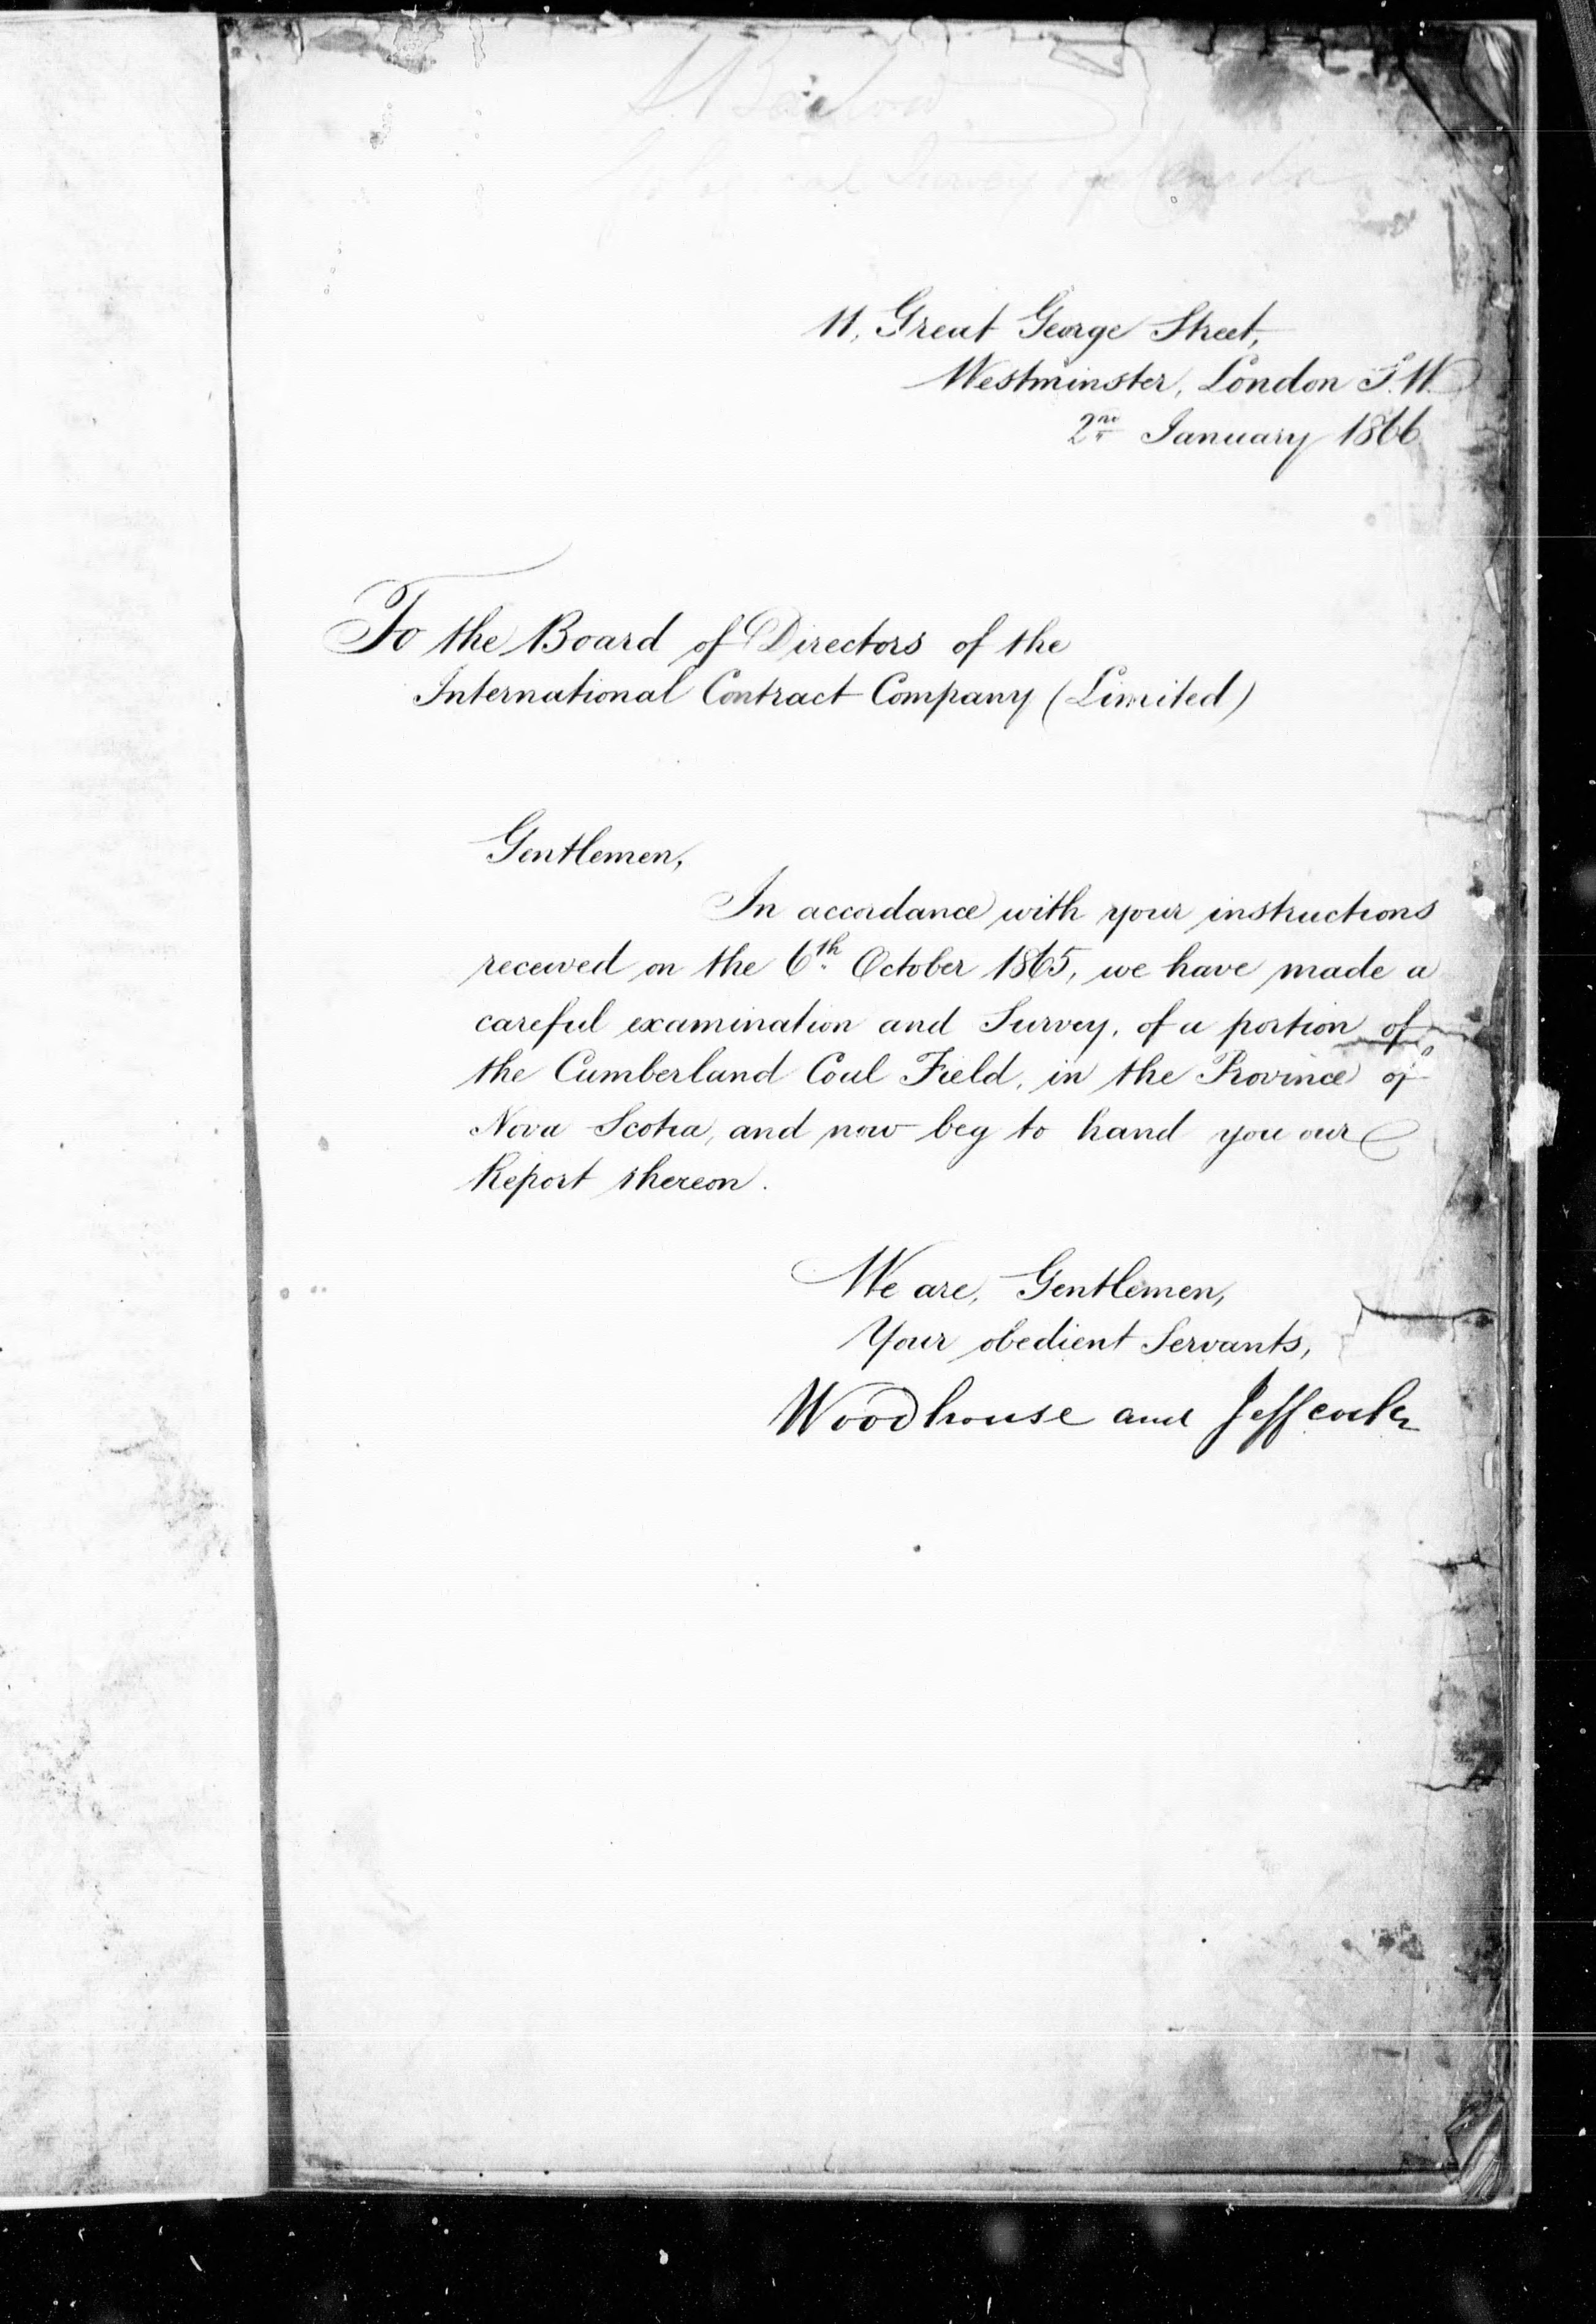 Barlow
Survey of Canada
11, Great George Street,
Westminster, London S.W.
2nd January 1866
To the Board of Directors of the
International Contract Company (Limited)
Gentlemen,
In accordance with your instructions
received on the 6th. October 1865, we have made a
careful examination and Survey, of a portion of
the Cumberland Coal Field, in the Province of
Nova Scotia, and now beg to hand you our
Report thereon.
We are, Gentlemen,
Your obedient Servants,
Woodhouse and Jeffcock